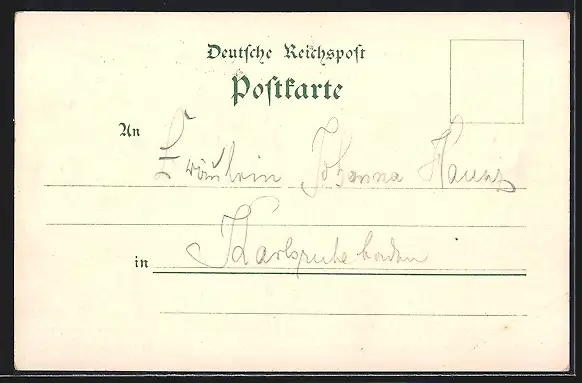 Deutsche Reichspost
Postkarte
An Fräulein Johanna
in Karlsruhe baden